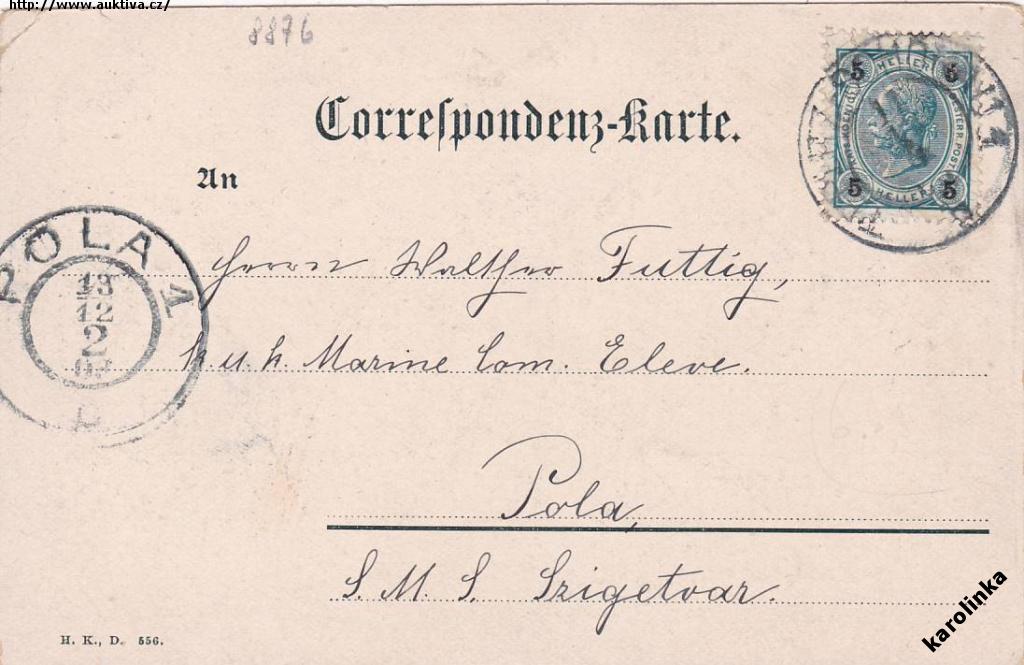 http://www.auktiva.cz/
8876
Correspondenz-Karte.
An
5 HELLER 5
5 HELLER 5
POLA 1
13
12
2
Herrn Walther Futtig,
k. u. k. Marine Com. Eleve.
Pola,
S. M. S. Szigetvar.
H. K., D. 556.
karolinka